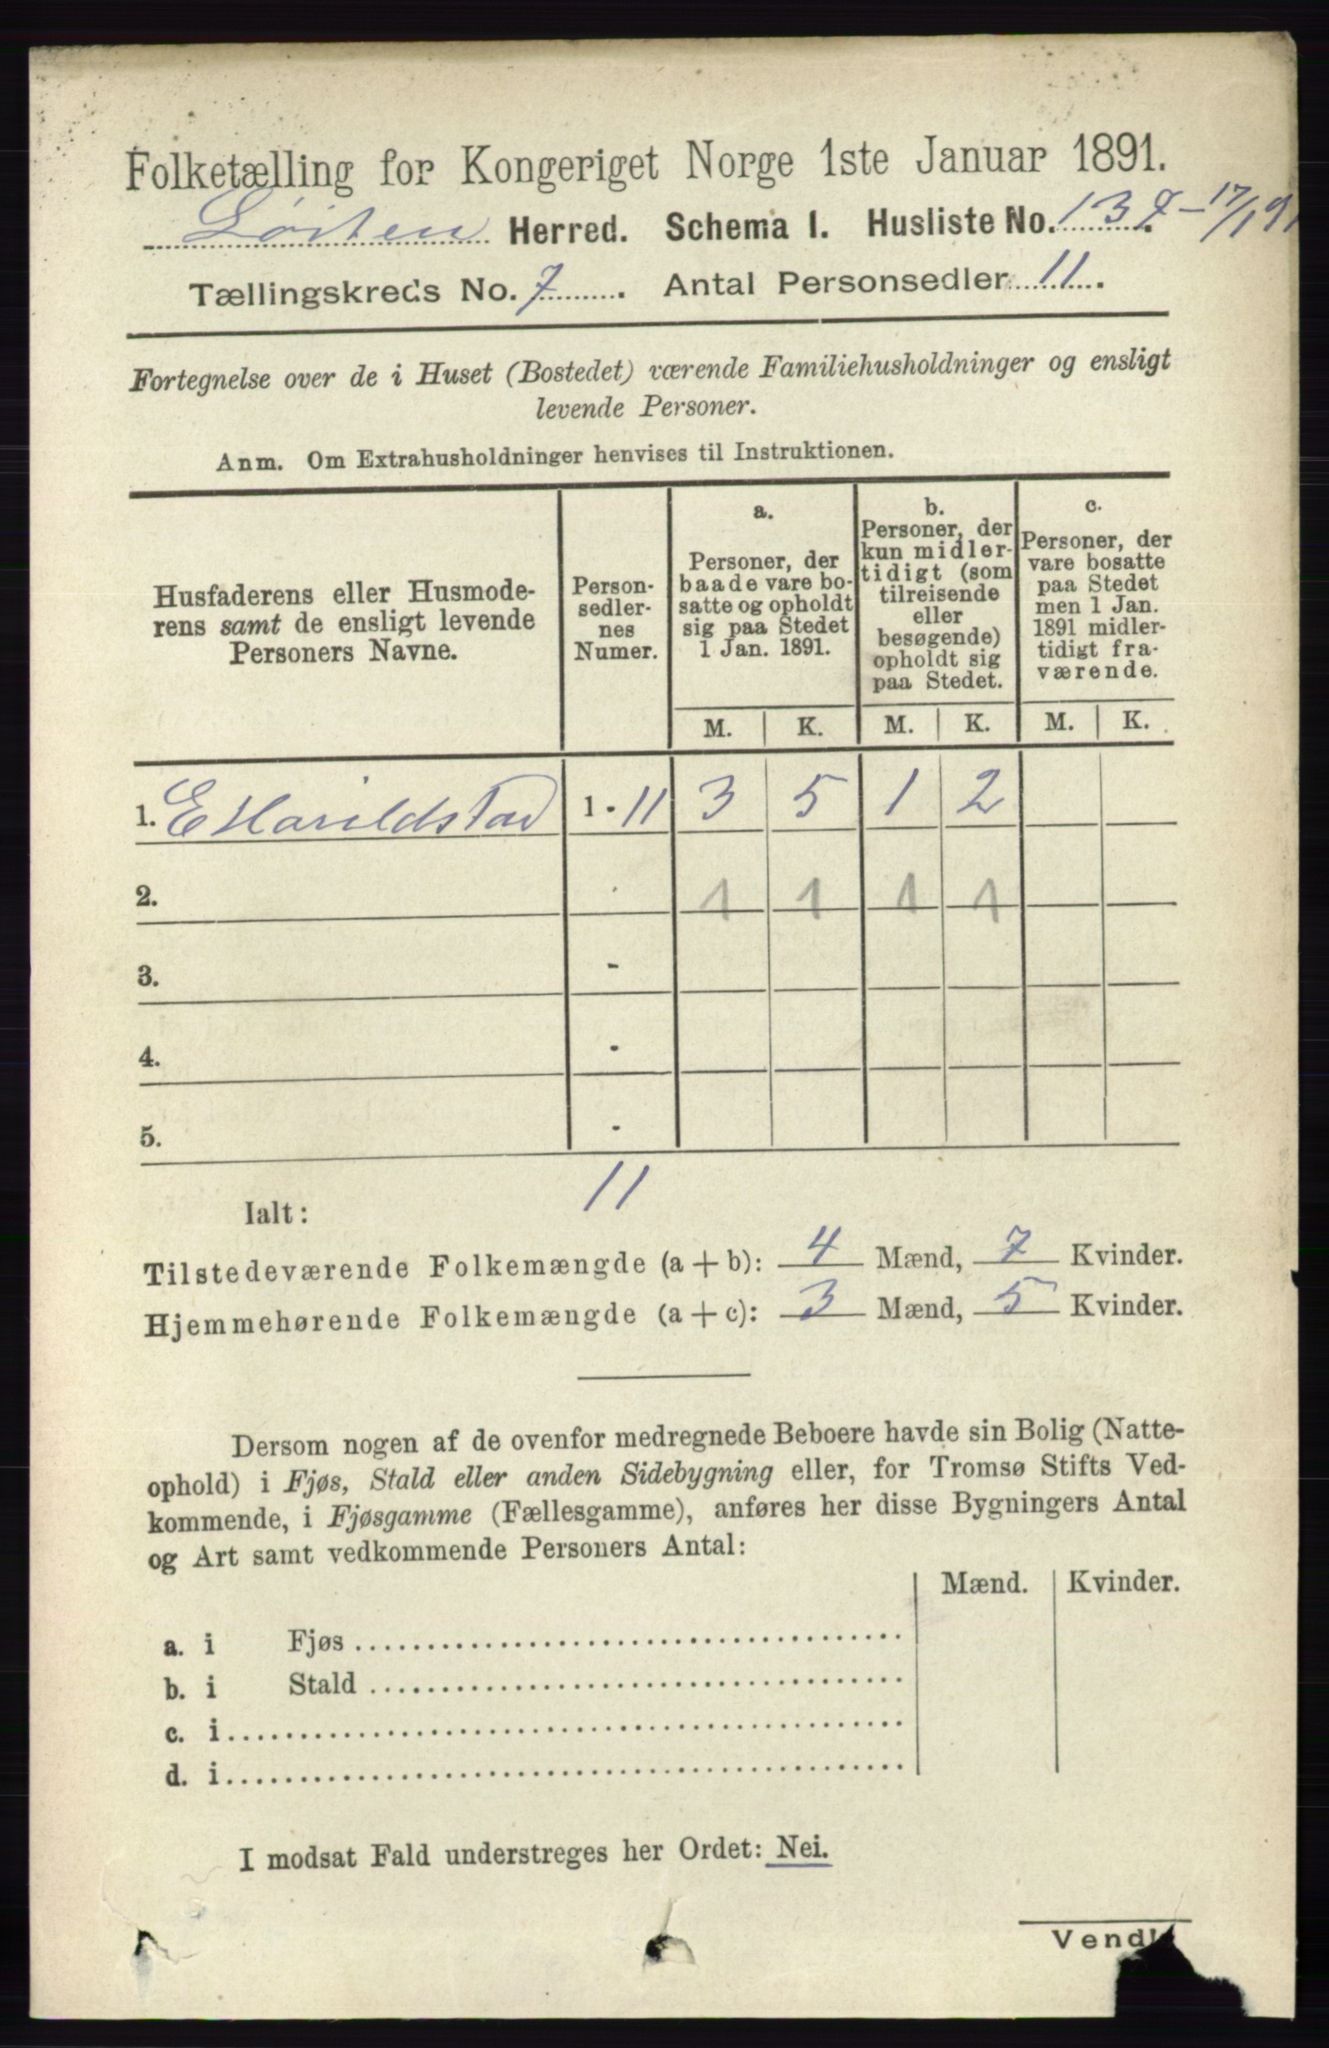 Folketælling for Kongeriget Norge 1ste Januar 1891.
Løiten Herred. Schema I. Husliste No. 137 - 17/1 91
Tællingskreds No. 7. Antal Personsedler 11.
Fortegnelse over de i Huset (Bostedet) værende Familiehusholdninger og ensligt
levende Personer.
Anm. Om Extrahusholdninger henvises til Instruktionen.
Husfaderens eller Husmode-
rens samt de ensligt levende
Personers Navne.
Person-
sedler-
nes
Numer.
a.
Personer, der
baade vare bo-
satte og opholdt
sig paa Stedet
1 Jan. 1891.
b.
Personer, der
kun midler-
tidigt (som
tilreisende
eller
besøgende)
opholdt sig
paa Stedet.
c.
Personer, der
vare bosatte
paa Stedet
men 1 Jan.
1891 midler-
tidigt fra-
værende.
M. K. M. K. M. K.
1. E Harildstad 1 - 11 3 5 1 2
2. 1 1 1 1
3. -
4. -
5. -
11
Ialt:
Tilstedeværende Folkemængde (a + b): 4 Mænd, 7 Kvinder.
Hjemmehørende Folkemængde (a + c): 3 Mænd, 5 Kvinder.
Dersom nogen af de ovenfor medregnede Beboere havde sin Bolig (Natte-
ophold) i Fjøs, Stald eller anden Sidebygning eller, for Tromsø Stifts Ved-
kommende, i Fjøsgamme (Fællesgamme), anføres her disse Bygningers Antal
og Art samt vedkommende Personers Antal:
Mænd. Kvinder.
a. i Fjøs
b. i Stald
c. i
d. i
I modsat Fald understreges her Ordet: Nei.
Vend!